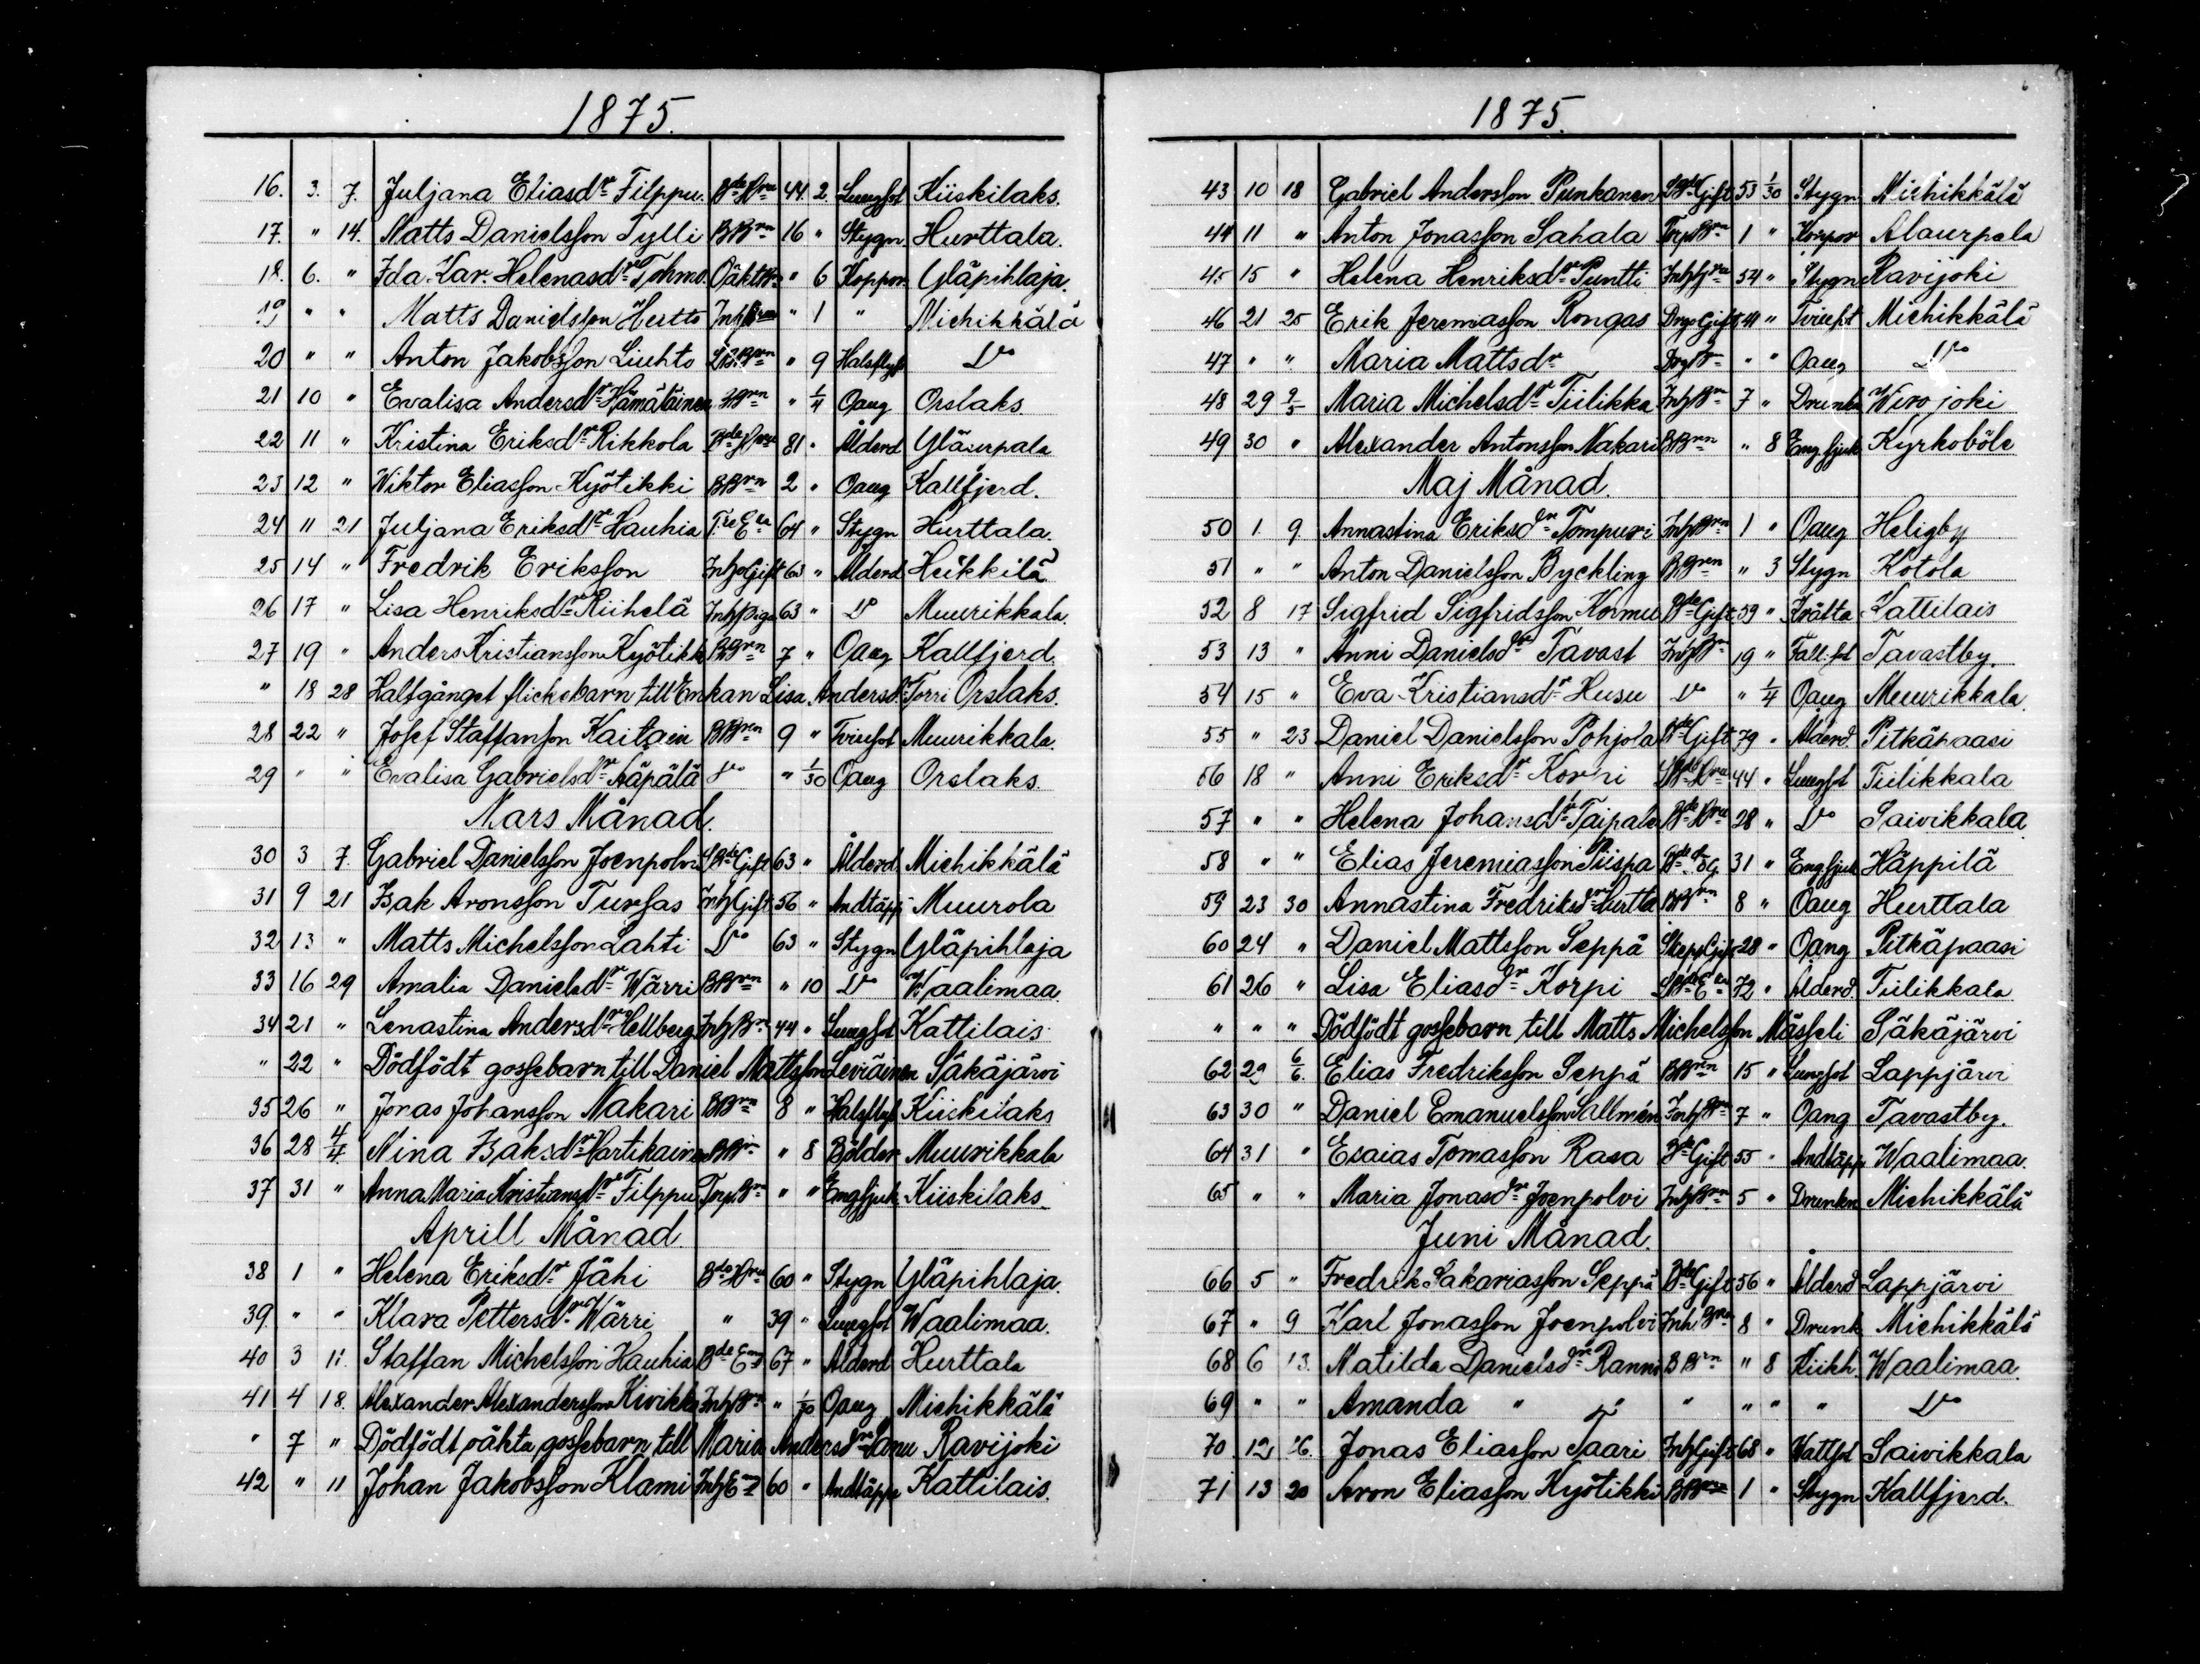 1875.
16. 3. 7. Juljana Eliasdr Filppu. Bde Hru 44. 2. Lungsot Kiiskilaks.
17. " 14. Matts Danielsson Tylli BBrn 16 " Stygn Hurttala.
18. 6. " Ida Kar. Helenasdr Tohmo. Oäkt Brn " 6 Koppor Yläpihlaja.
19 " " Matts Danielsson Hertto Inh Brn " 1 " Michikkälä
20 " " Anton Jakobsson Liuhto " 9 Halsflyt Do
21 10 " Evalisa Andersdr Hämäläinen BBrn " 1/4 Oang Orslaks.
22 11 " Kristina Eriksdr Rikkola Bde Hru 81 " Ålderd Yläurpala
23 12 " Wiktor Eliasson Kyötikki BBrn 2 " Oang Kallfjerd.
24 11 21 Juljana Eriksdr Hauhia Tre Eka 64 " Stygn Hurttala.
25 14 " Fredrik Eriksson Inh Gift 63 " Ålderd Heikkilä
26 17 " Lisa Henriksdr Riihelä Inh Piga 63 " Do Muurikkala.
27 19 " Anders Kristiansson Kyötikki BBrn 7 " Oang Kallfjerd.
" 18 28 Halfgånget flickobarn till Enkan Lisa Andersdr Torri Orslaks.
28 22 " Josef Staffanson Kaitain BBrn 9 " Tvinsot Muurikkala.
29 " " Evalisa Gabrielsdr Näpälä Do " 1/30 Oang Orslaks.
Mars Månad.
30 3 7. Gabriel Danielsson Joenpolvi Gift 63 " Ålderd Michikkälä
31 9 21 Isak Aronsson Tursas Inh Gift 56 " Andtäpp Muurola
32 13 " Matts Michelsson Lahti Do 63 " Stygn Yläpihlaja
33 16 29 Amalia Danielsdr Wärri BBrn " 10 Do Waalimaa.
34 21 " Lenastina Andersdr Hellberg Inh Brn 44 " Lungsot Kattilais
" 22 " Dödfödt gossebarn till Daniel Mattsson Leviäinen Säkäjärvi
35 26 " Jonas Johansson Nakari BBrn 8 " Halsflyt Kiiskilaks
36 28 4/4. Nina Isaksdr Vartikainen BBrn " 8 Bölder Muurikkala
37 31 " Anna Maria Kristiansdr Filppu Torp Brn " " Eng sjuk Kiiskilaks.
Aprill Månad.
38 1 " Helena Eriksdr Jähi Bde Hru 60 " Stygn Yläpihlaja.
39 " " Klara Pettersdr Wärri " 39 " Lungsot Waalimaa.
40 3 11. Staffan Michelsson Hauhia Bde Enkl 67 " Ålderd Hurttala
41 4 18. Alexander Alexandersson Kivikko Inh Brn " Oang Michikkälä
" 7 " Dödfödt oäkta gossebarn till Maria Andersdr Ravijoki
42 " 11 Johan Jakobsson Klami Inh Enkl 60 " Andtäppa Kattilais.
1875.
43 10 18 Gabriel Andersson Punkanen Gift 53 1/30 Stygn Michikkälä
44 11 " Anton Jonasson Sahala Torp Brn 1 " Koppor Alaurpala
45 15 " Helena Henriksdr Puntti Inh Hru 54 " Stygn Ravijoki
46 21 25 Erik Jeremiasson Rongas Drg Gift 41 " Tvinsot Michikkälä
47 " " Maria Mattsdr " " Oang Do
48 29 9/5 Maria Michelsdr Tiilikka Inh Brn 7 " Drunkn Wirojoki
49 30 " Alexander Antonsson Nakari BBrn " 8 Eng sjuk Kyrkoböle
Maj Månad.
50 1. 9. Annastina Eriksdr Tompuri Inh Brn 1 " Oang Heligby
51 " " Anton Danielsson Byckling BBrn " 3 Stygn Kotola
52 8 17 Sigfrid Sigfridsson Kormu Bde Gift 59 " Kräfta Kattilais
53 13 " Anni Danielsdr Tavast Inh Brn 19 " Fall. sot Tavastby.
54 15 " Eva Kristiansdr Husu Do " 1/4 Oang Muurikkala
55 " 23 Daniel Danielsson Pohjola Bde Gift 79 " Ålderd. Pitkäpaasi
56 18 " Anni Eriksdr Korpi Hru 44 " Lungsot Tiilikkala
57 " " Helena Johansdr Taipale Bde Hru 28 " Do Saivikkala
58 " " Elias Jeremiasson Piispa 31 " Eng sjuk Häppilä
59 23 30 Annastina Fredriksdr Hurtta BBrn 8 " Oang Hurttala
60 24 " Daniel Mattsson Seppä Skepp Gift 28 " Oang Pitkäpaasi
61 26 " Lisa Eliasdr Korpi 72 " Ålderd. Tiilikkala
" " " Dödfödt gossebarn till Matts Michelsson Mässeli Säkäjärvi
62 29 6/6. Elias Fredriksson Seppä BBrn 15 " Lungsot Lappjärvi
63 30 " Daniel Emanuelsson Sallmén Inh Brn 7 " Oang Tavastby.
64 31 " Esaias Tomasson Rasa Bde Gift 55 " Andtäpp Waalimaa.
65 " " Maria Jonasdr Joenpolvi Inh Brn 5 " Drunkn Michikkälä
Juni Månad.
66 5 " Fredrik Sakariasson Seppä Bde Gift 56 " Ålderd Lappjärvi
67 " 9 Karl Jonasson Joenpolvi Inh Brn 8 " Drunk Michikkälä
68 6 13. Matilda Danielsdr Ranni BBrn " 8 Kikh. Waalimaa.
69 " " Amanda " " " " " " Do
70 12 16. Jonas Eliasson Saari Inh Gift 68 " Vattsot Saivikkala
71 13 20 Aron Eliasson Kyötikki BBrn 1 " Stygn Kallfjerd.